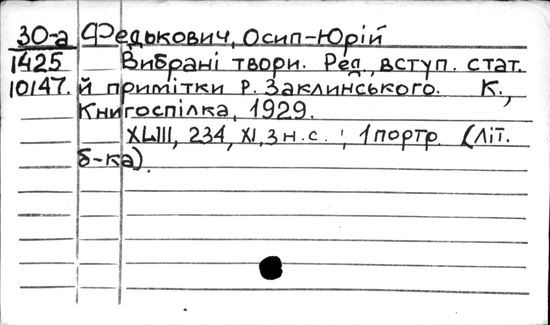 30-а Федькович, Осип-Юрій
1425 Вибрані твори. Ред., вступ. стат.
10147. й примітки Р. Заклинського. К.,
Книгоспілка, 1929.
XLIII, 234, XI, 3 н.с.; 1 портр. (Літ.
б-ка).